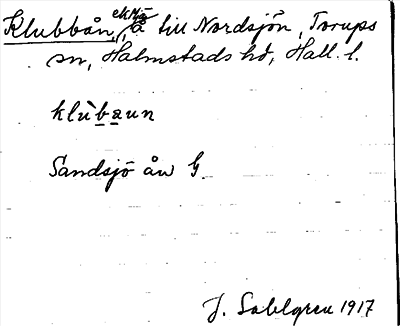 Klubbån, å till Nordsjön, Torups
sn, Halmstads hd, Hall. l.
klùbaun
Sandsjö ån G
J. Sahlgren 1917